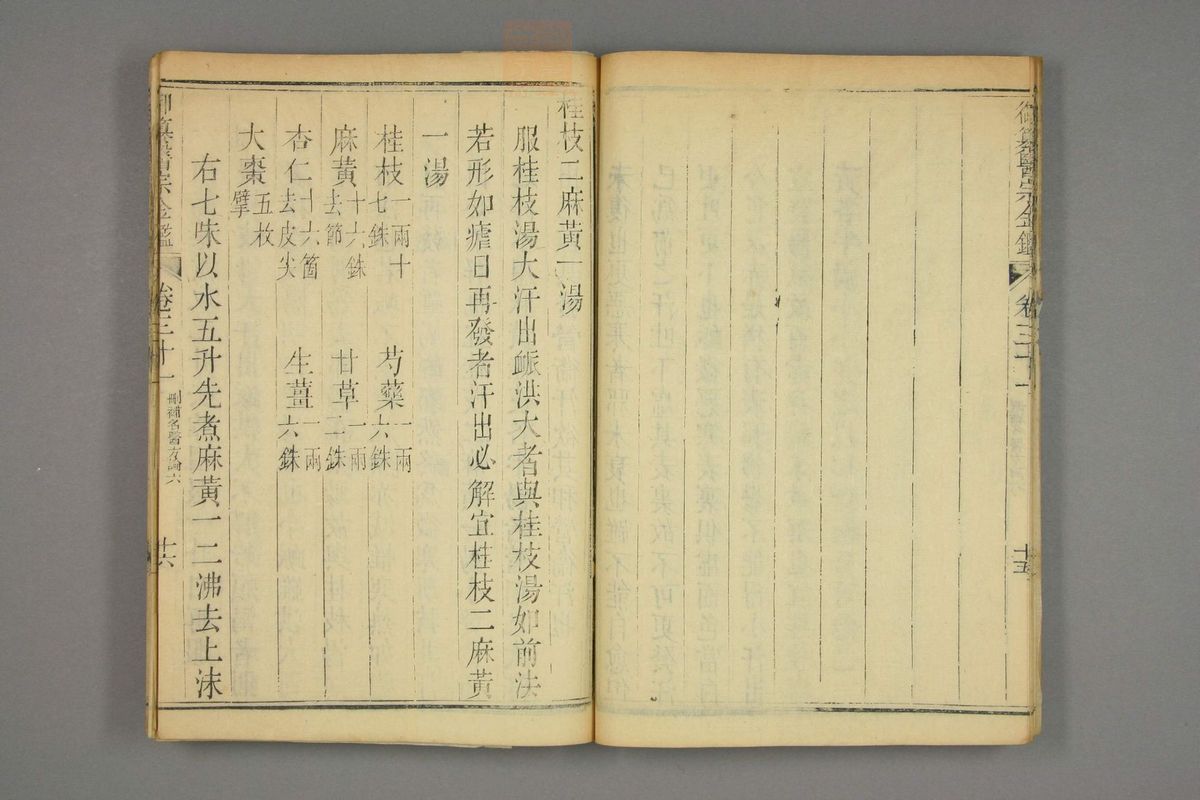 御纂醫宗金鑑
卷三十一
十五
桂枝二麻黃一湯
服桂枝湯大汗出脈洪大者與桂枝湯如前法
若形如瘧日再發者汗出必解宜桂枝二麻黃
一湯
桂枝一兩十七銖 芍藥一兩六銖
麻黃十六銖去節 甘草一兩二銖
杏仁十六箇去皮尖 生薑一兩六銖
大棗五枚擘
右七味以水五升先煮麻黃一二沸去上沫
卷三十一
刪補名醫方論六
十六